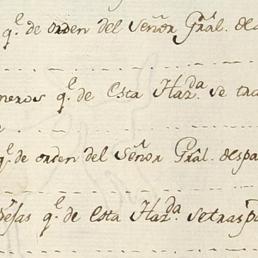 q.^e de orden del Señor Gral. de
neros q.^e de esta Haz.^da se tra
q.^e de orden del Señor Gral. despa
q.^e de esta Haz.^da se trasp